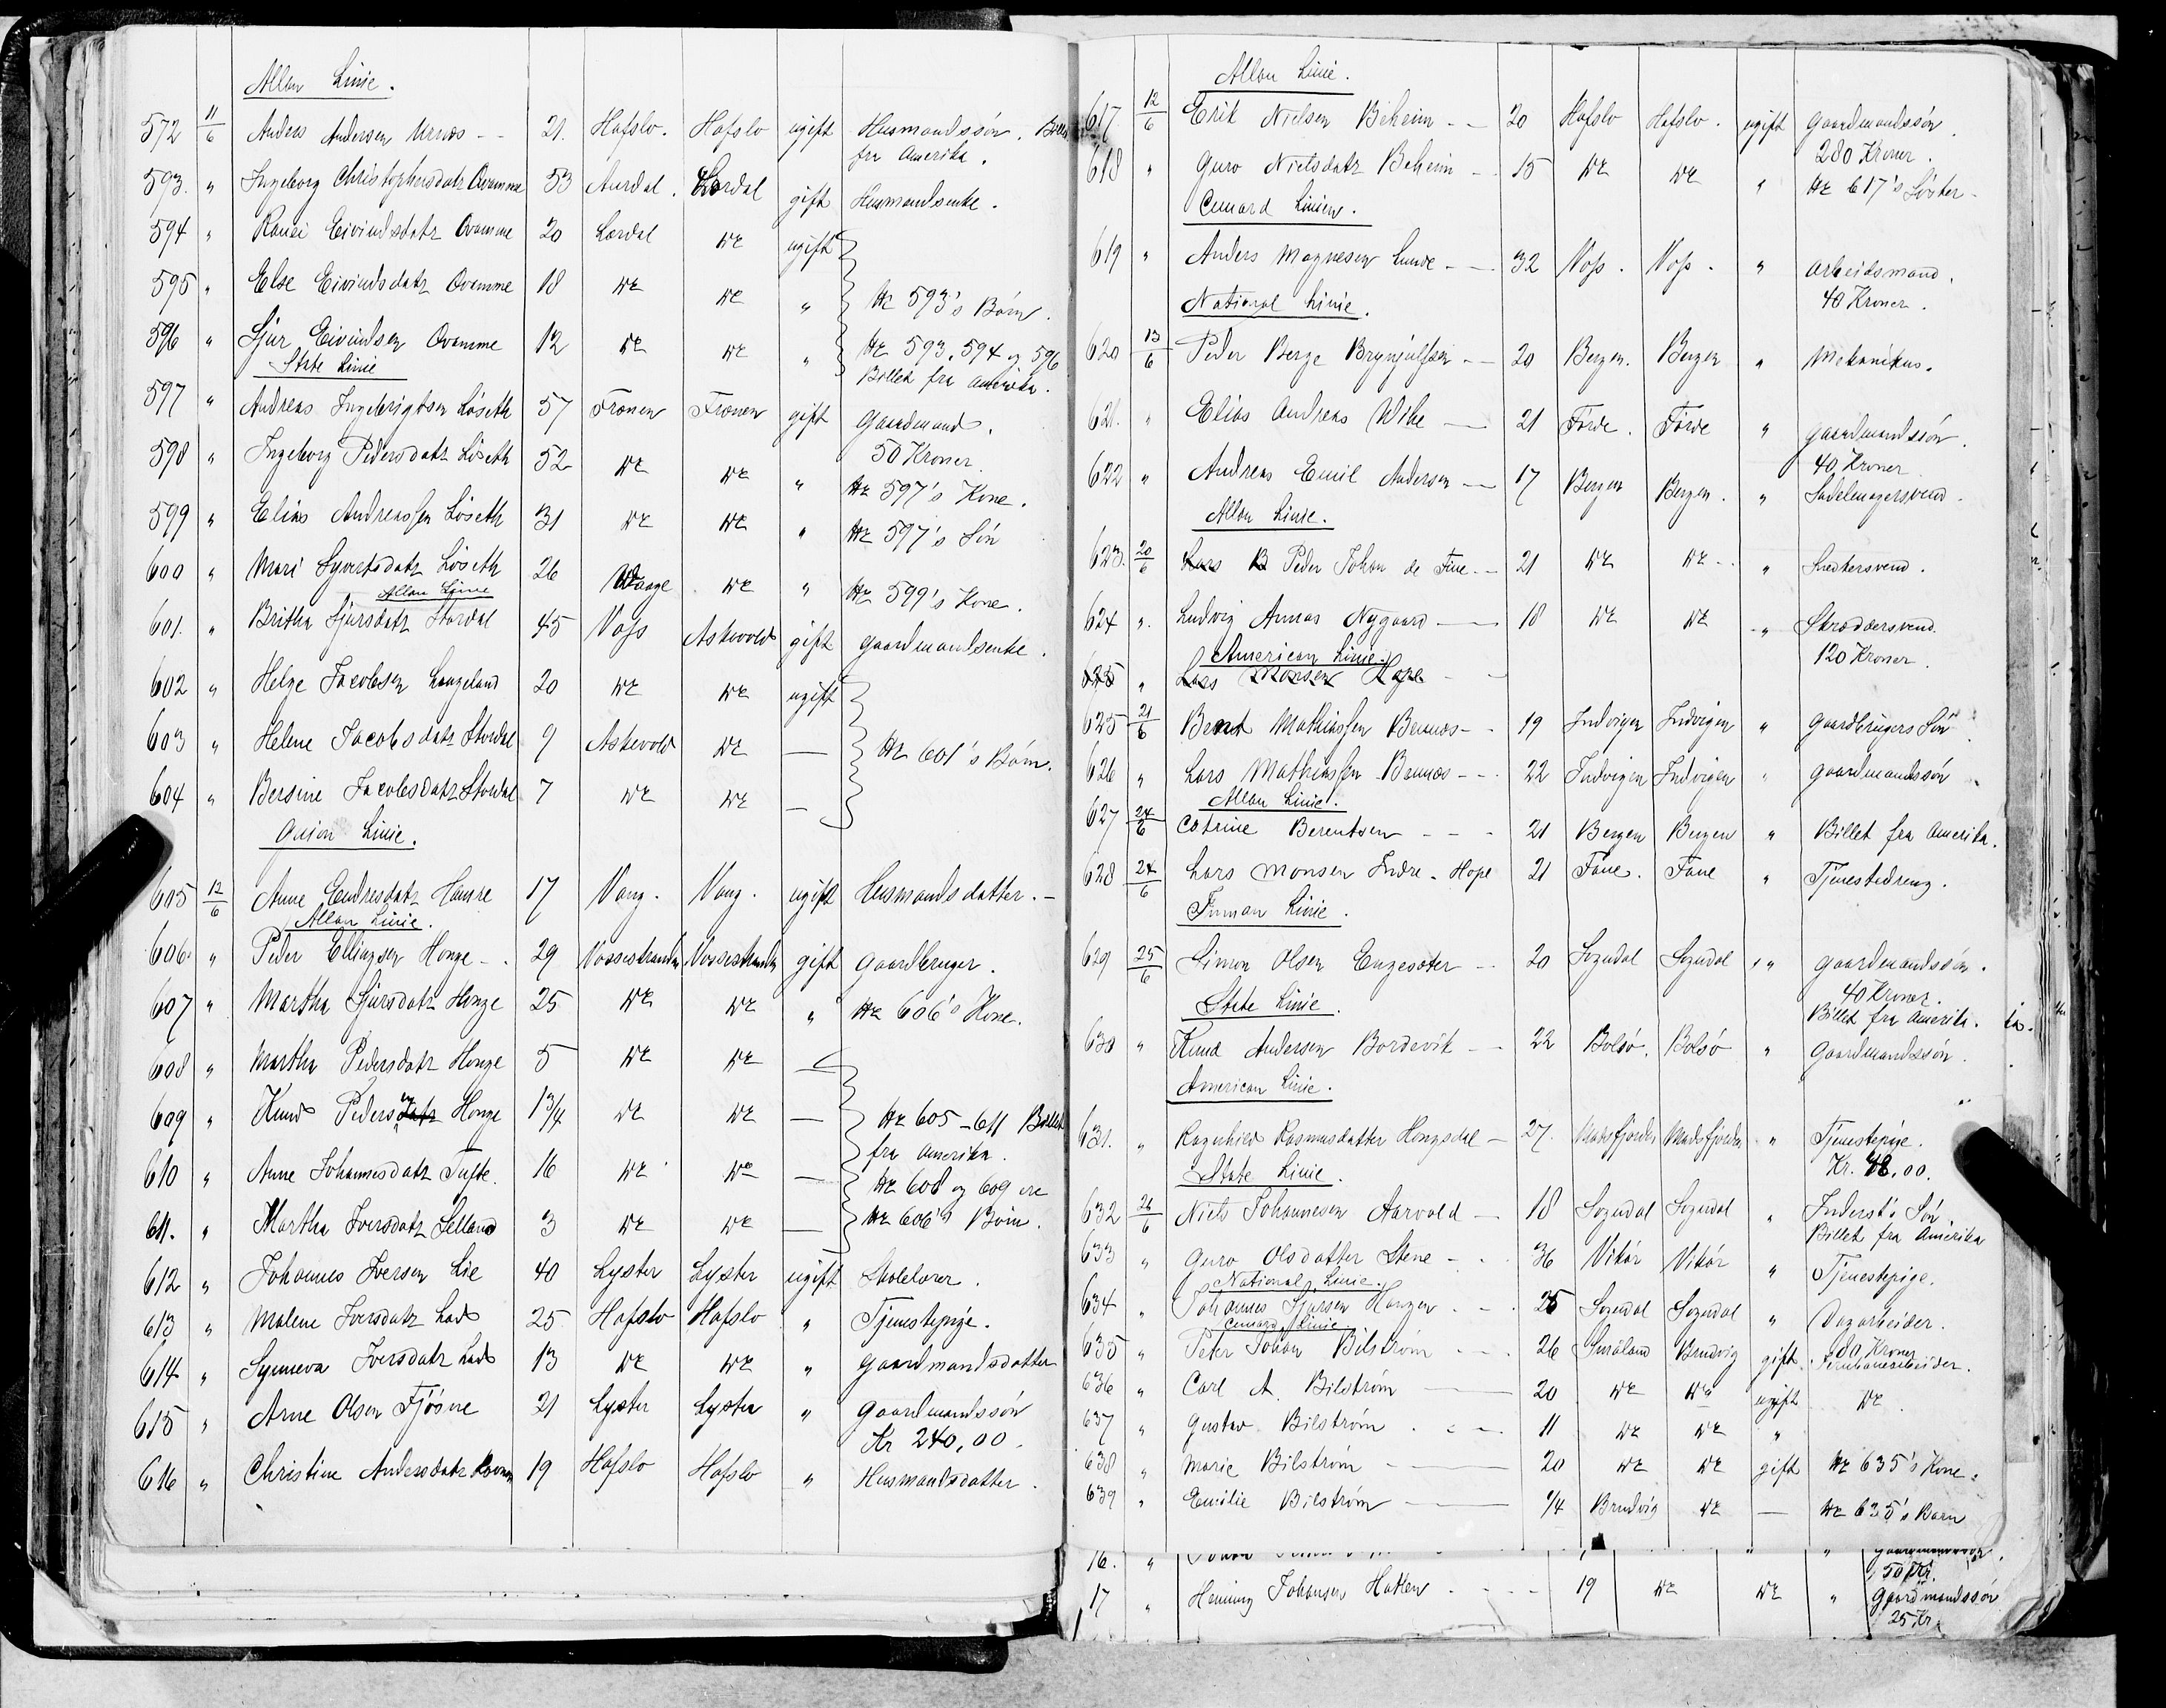 Allan Linie.
572 11/6 Anders Andersen Urnæs 21. Hafslo. Hafslo ugift Husmandssön. Billet
fra Amerika.
593. " Ingeborg Christophersdatr Qvamme 53 Aurdal. Lærdal gift Husmandsenke.
594 " Ranei Eivindsdatr Qvamme 20 Lærdal do ugift
595 " Else Eivindsdatr Qvamme 18 do do " No 593's Börn.
596 " Sjur Eivindsen Qvamme 12 do do " No 593, 594 og 596
State Linie
Billet fra Amerika.
597 " Andreas Ingebrigtsen Löseth 57 Fronen Fronen gift Gaardmand.
50 Kroner.
598 " Ingeborg Pedersdatr Löseth 52 do do " No 597's Kone.
599 " Elias Andreassen Löseth 31 do do " No 597's Sön
600 " Mari Syvertsdatr Löseth 26 Waage do " No 599's Kone.
Allan Linie
601. " Britha Sjursdatr Stordal 45 Voss Askevold gift Gaardmandsenke.
602 " Helge Jacobsen Langeland 20 do do ugift
603 " Helene Jacobsdatr Stordal 9 Askevold do — No 601's Börn.
604 " Bersine Jacobsdatr Stordal 7 do do —
Guion Linie.
605 12/6 Anne Endresdatr Hausse 17 Vang. Vang. ugift Husmandsdatter.
Allan Linie.
606. " Peder Ellingsen Honge 29 Vossestranden Vossestranden gift Gaardbruger.
607 " Martha Sjursdatr Honge 25 do do " No 606's Kone.
608 " Martha Pedersdatr Honge 5 do do —
609 " Knud Pedersen Honge 1 3/4 do do — No 605-611 Billet
fra Amerika.
610 " Anne Johannesdatr Tufte. 16 do do — No 608 og 609 ere
611. " Martha Iversdatr Selland 3 do do — No 606's Börn.
612 " Johannes Iversen Lie 40 Lyster Lyster ugift Skolelærer.
613 " Malene Iversdatr Lad 25 Hafslo Hafslo " Tjenestepige.
614 " Synneva Iversdatr Lad 13 do do " Gaardmandsdatter
615 " Arne Olsen Fjösne 21 Lyster Lyster " Gaardmandssön
Kr 240,00.
616 " Christine Andersdatr 19 Hafslo Hafslo " Husmandsdatter.
Allan Linie.
617 12/6 Erik Nielsen Beheim 20 Hafslo Hafslo. ugift Gaardmandssön.
280 Kroner.
618 " Guro Nielsdatr Beheim 15 do do " No 617's Söster
Cunard Linien.
619 " Anders Magnesen Lunde 32 Voss. Voss. " Arbeidsmand.
40 Kroner.
National Linie.
620 13/6 Peder Berge Brynjulfsen 20 Bergen. Bergen " Mekanikus.
621. " Elias Andreas Wibe 21 Förde. Förde " Gaardmandssön.
40 Kroner
622 " Andreas Emil Andersen 17 Bergen Bergen. " Sadelmagersvend.
Allan Linie.
623. 20/6 Lars B Peder Johan de Fine 21 do do " Snedkersvend.
624 " Ludvig Annas Nygaard 18 do do " Skræddersvend.
120 Kroner.
American Linie.
625 " Lars Monsen Hope
625 21/6 Bernt Mathiassen Brunæs 19 Indvigen Indvigen " Gaardbrugers Sön
626 " Lars Mathiassen Brunæs 22 Indvigen Indvigen " Gaardmandssön
Allan Linie.
627 24/6 Catrine Berentsen 21 Bergen Bergen " Billet fra Amerika.
628 24/6 Lars Monsen Indre-Hope 21 Fane. Fane " Tjenestedreng.
Inman Linie.
629 25/6 Simon Olsen Engesæter 20 Sogndal Sogndal " Gaardmandssön.
40 Kroner.
State Linie.
Billet fra Amerika.
630 " Knud Andersen Bordevik 22 Bolsö. Bolsö " Gaardmandssön.
American Linie.
631. " Ragnhild Rasmusdatter Hongsdal 27. Madsfjorden Madsfjorden " Tjenestepige.
Kr. 48,00.
State Linie.
632 26/6 Niels Johannesen Aarvold 18 Sogndal Sogndal " Inderst's Sön
Billet fra Amerika
633 " Guro Olsdatter Stene 36 Vikör Vikör " Tjenestepige.
National Linie.
634 " Johannes Sjursen Haugen 25 Sogndal Sogndal " Dagarbeider.
80 Kroner
Cunard Linie
635 " Peter Johan Bilström 26 Småland Bruvig gift Jernbanearbeider.
636 " Carl A. Bilström 20 do do ugift do.
637 " Gustav Bilström 11 do do "
638 " Marie Bilström 20 do do gift No 635's Kone.
639 " Emilie Bilström 1/4 Bruvig do — No 635's Barn
16. "
50 Kr.
17 " Henning Johansen Hatlen 19 do do " Gaardmandssön
25 Kr.